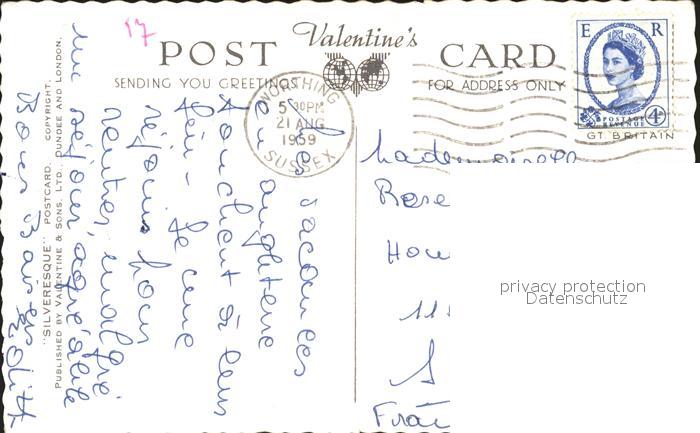 17
POST Valentine's CARD
SENDING YOU GREETINGS
FOR ADDRESS ONLY
E R
POSTAGE REVENUE
4D
GT. BRITAIN
WORTHING
5 30PM
21 AUG
1959
SUSSEX
"SILVERESQUE" POSTCARD. COPYRIGHT.
PUBLISHED BY VALENTINE & SONS, LTD., DUNDEE AND LONDON.
Les vacances
en angleterre
touchent à leur
fin - Je me
réjouis pour
rentrer, malgré
un séjour agréable
Bons Baisers
Mademoiselle
Rose
How
11
Fran
privacy protection
Datenschutz